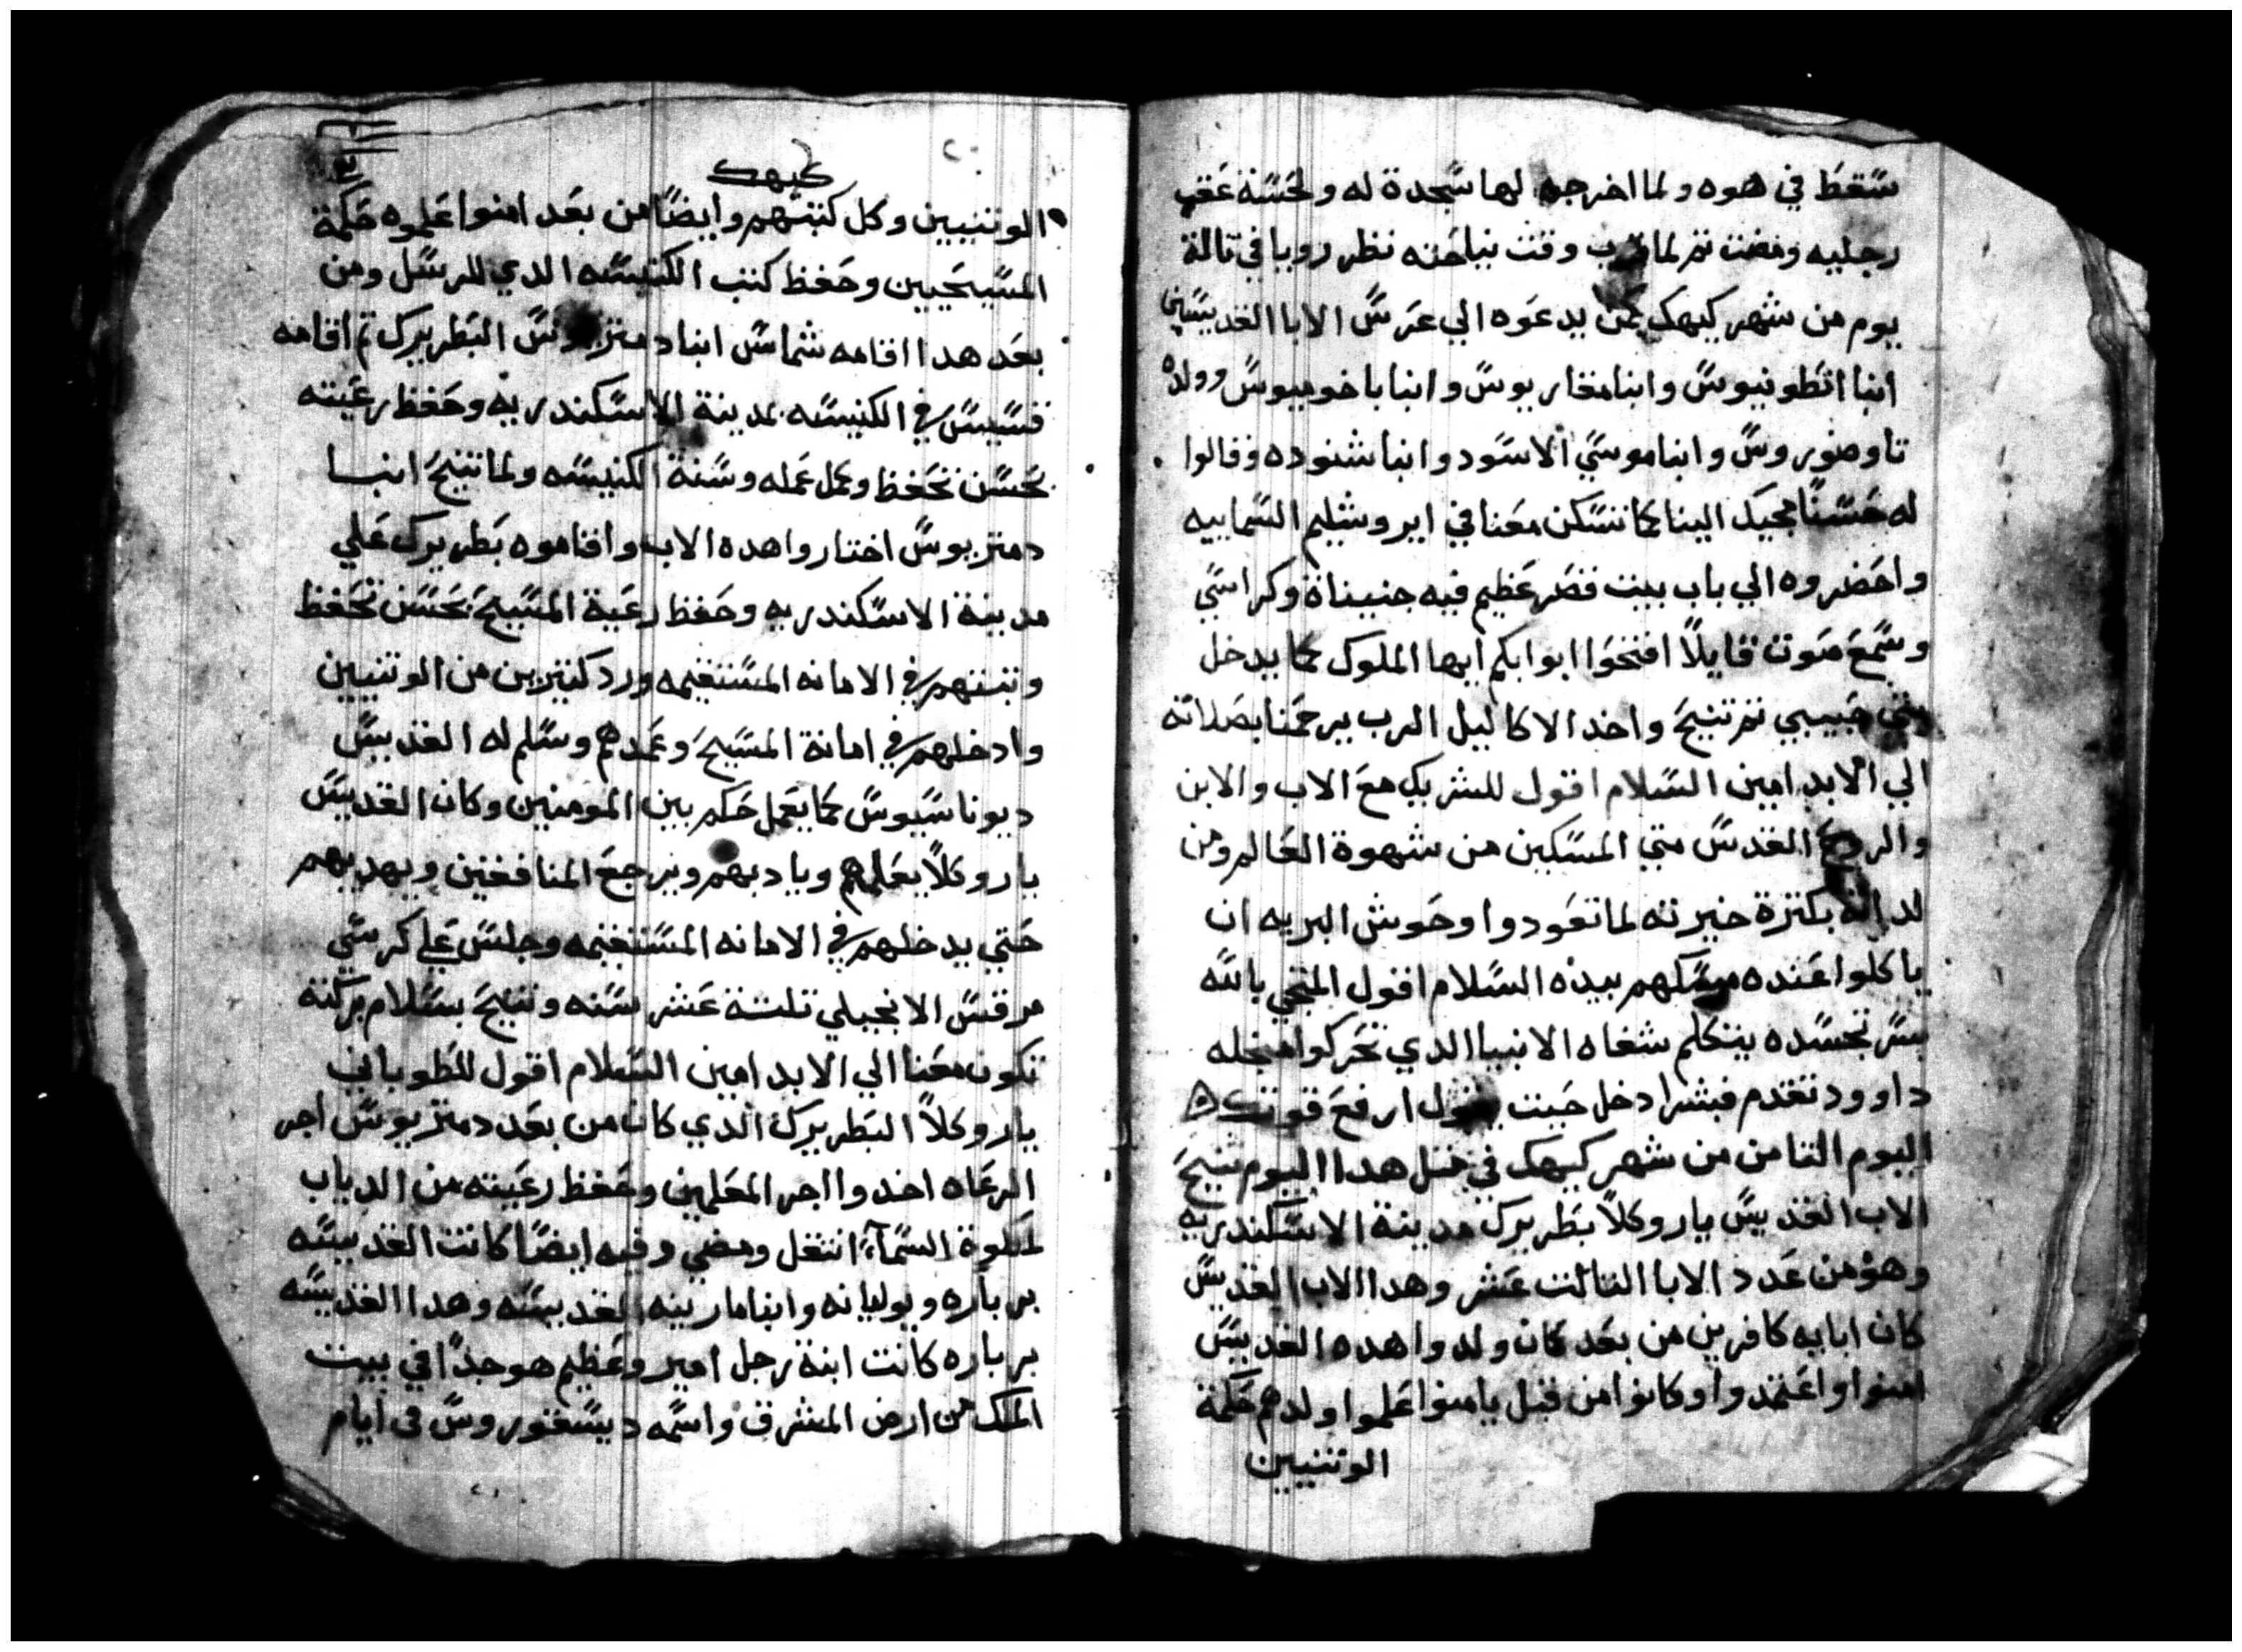 سقط في هوه ولما اخرجه لها سجدة له ولحسة عقب
رجليه ومضت تم لما قرب وقت نياحته نظر رويا في تالة
يوم من شهر كيهك لمن يدعوه الي عرس الابا القديسين
انبا انطونيوس وانبا مقاريوس وانبا باخوميوس وولده
تاوضوروس وانبا موسي الاسود وانبا شنوده وقالوا
له حسنًا مجيك الينا كما تسكن معنا في ايروشليم السماييه
واحضروه الي باب بيت قصر عظيم فيه جنيناة وكراسي
وسمع صوت قايلاً افتحوا ابوابكم ايها الملوك كما يدخل
متي حبيبي تم تنيح واخد الاكاليل الرب يرحمنا بصلاته
الي الابد امين السلام اقول للشريك مع الاب والابن
والروح القدس متي المسكين من شهوة العالم ومن
لداته بكترة خيرته لما تعودوا وحوش البريه ان
ياكلوا عنده مسكهم بيده السلام اقول المتجي بالله
بسر تجسده يتكلم شفاه الانبيا الدي تحركوا من خله
داوود تقدم فبشر ادخل حيت يقول ارفع قوتك
اليوم التامن من شهر كيهك في متل هدا اليوم تنيح
الاب القديس ياروكلاً بطريرك مدينة الاسكندريه
وهو من عدد الابا التالت عشر وهدا الاب القديس
كان ابايه كافرين من بعد كان ولدوا هده القديس
امنوا واعتمدوا وكانوا من قبل يامنوا علموا ولدهم حكمة
الوتنيين
كيهك
الوتنيين وكل كتبتهم وايضًا من بعد امنوا علموه حكمة
المسيحيين وحفظ كتب الكنيسه الدي للرسل ومن
بعد هدا اقامه شماس انبا دمتريوس البطريرك تم اقامه
قسيس في الكنيسه بمدينة الاسكندريه وحفظ رعيته
بحسن تحفظ وكمل عمله وسنة الكنيسه ولما تنيح انبا
دمتريوس اختاروا هده الاب واقاموه بطريرك علي
مدينة الاسكندريه وحفظ رعية المسيح بحسن تحفظ
وتبتهم في الامانه المستقيمه ورد كتيرين من الوتنيين
وادخلهم في امانة المسيح وعمدهم وسلم له القديس
ديوناسيوس كما يعمل حكم بين المومنين وكان القديس
ياروكلاً يعلمهم ويادبهم ويرجع المنافقين ويهديهم
حتي يدخلهم في الامانه المستقيمه وجلس علي كرسي
مرقس الانجيلي تلتة عشر سنه وتنيح بسلام بركته
تكون معنا الي الابد امين السلام اقول للطوباني
ياروكلاً البطريرك الدي كان من بعد دمتريوس اجر
الرعاه اخدوا اجر المعلمين وحفظ رعيته من الدياب
لملكوة السمآء انتقل ومضي وفيه ايضًا كانت القديسه
برباره ويوليانه وانبا مارينه القديسه وهدا القديسه
برباره كانت ابنة رجل امير وعظيم هو جدًا في بيت
الملك من ارض المشرق واسمه ديسقوروس في ايام